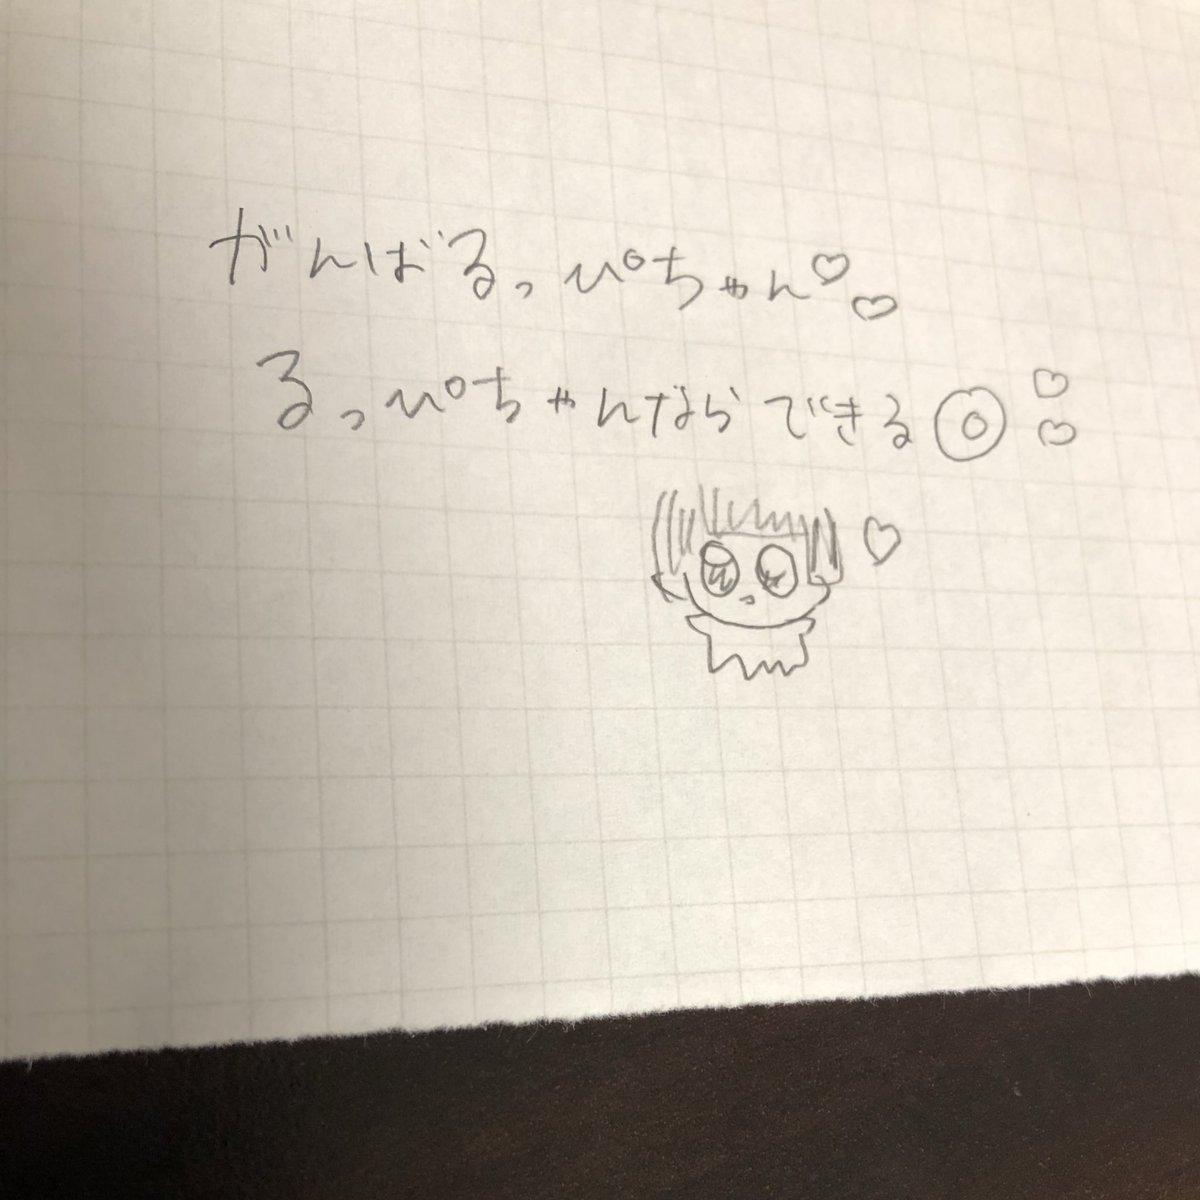 がんばるっぴちゃん♡♡
るっぴちゃんならできる◎♡♡